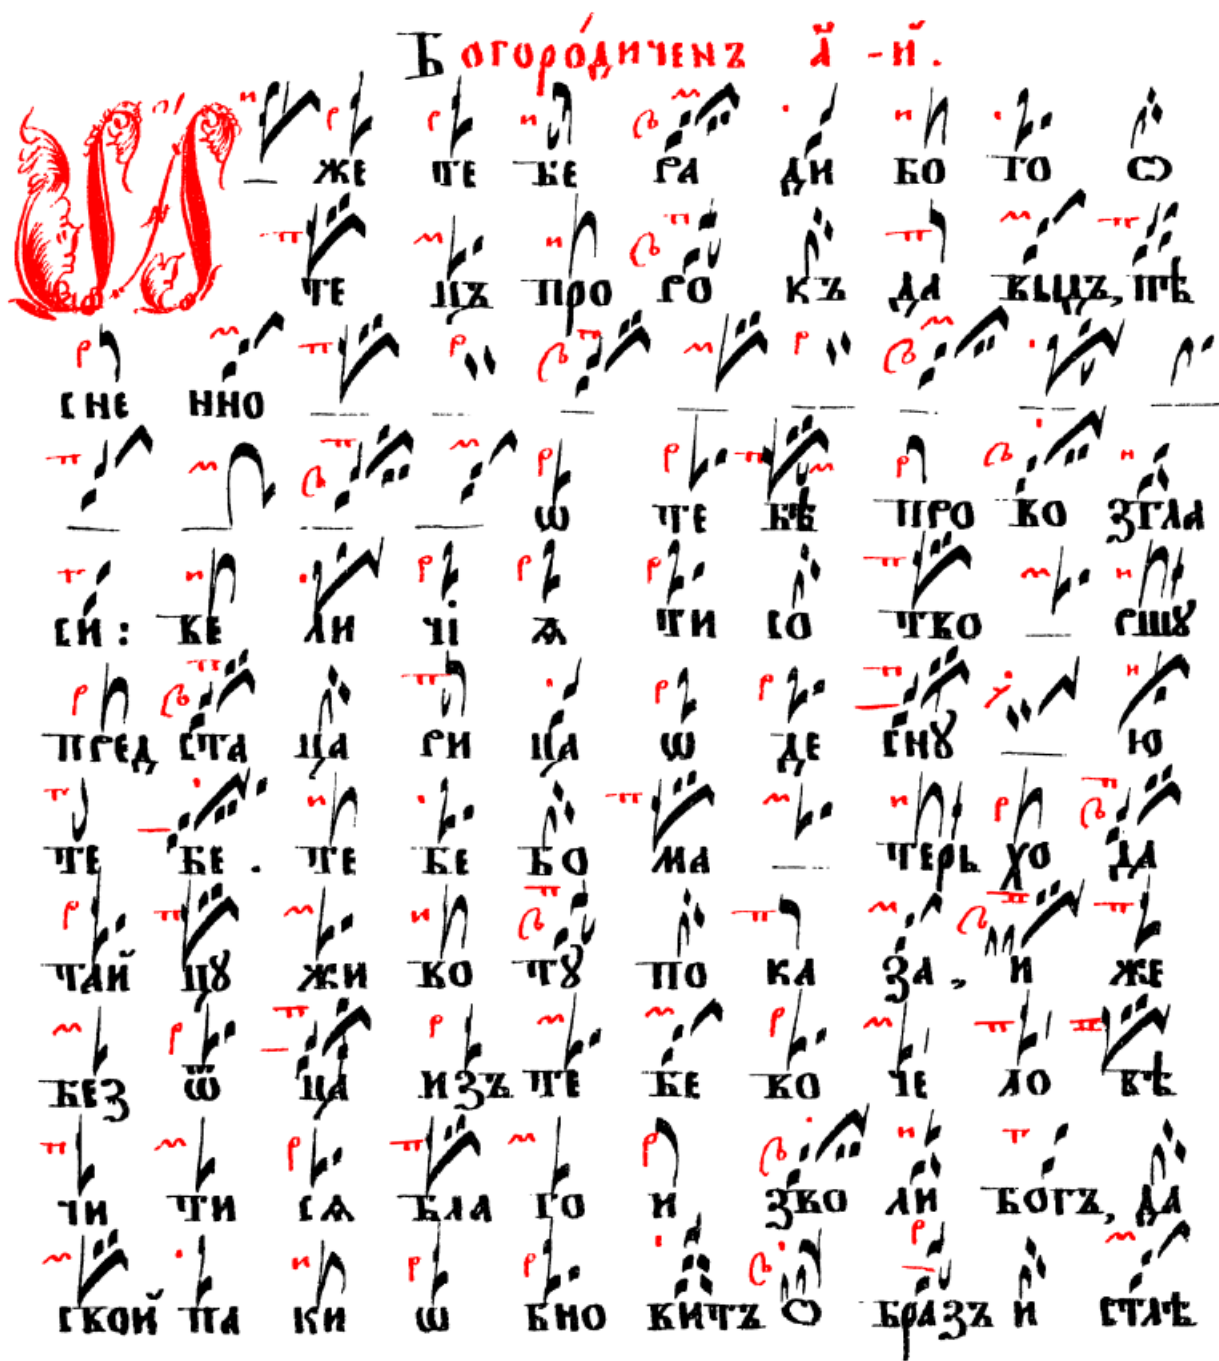 Богоро́диченъ а҃ -й.
И - же те бе ра ди бо го ѻ
те цъ про ро къ да выдъ, пѣ
сне нно
ѡ те бѣ про во згла
си: ве ли чі ѧ ти со тво ршꙋ
пред ста ца ри ца ѡ де снꙋ ю
те бе. те бе бо ма терь хо да
тай цꙋ жи во тꙋ по ка за, и же
без ѿ ца изъ те бе во че ло вѣ
чи ти сѧ бла го и зво ли богъ, да
свой па ки ѡ бно витъ ѻ бразъ и стлѣ